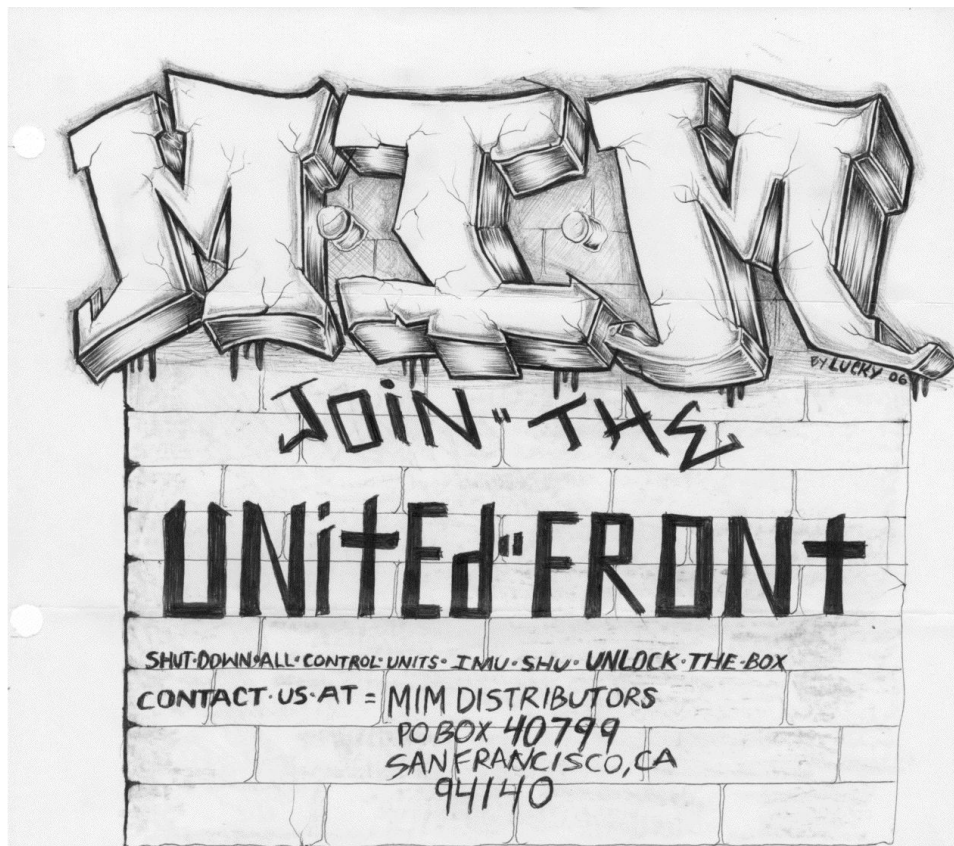 MIM
BY LUCKY 06
JOiN THE
UNitEd FRONt
SHUT·DOWN·ALL·CONTROL·UNITS·IMU·SHU·UNLOCK·THE·BOX
CONTACT·US·AT = MIM DISTRIBUTORS
PO BOX 40799
SAN FRANCISCO, CA
94140